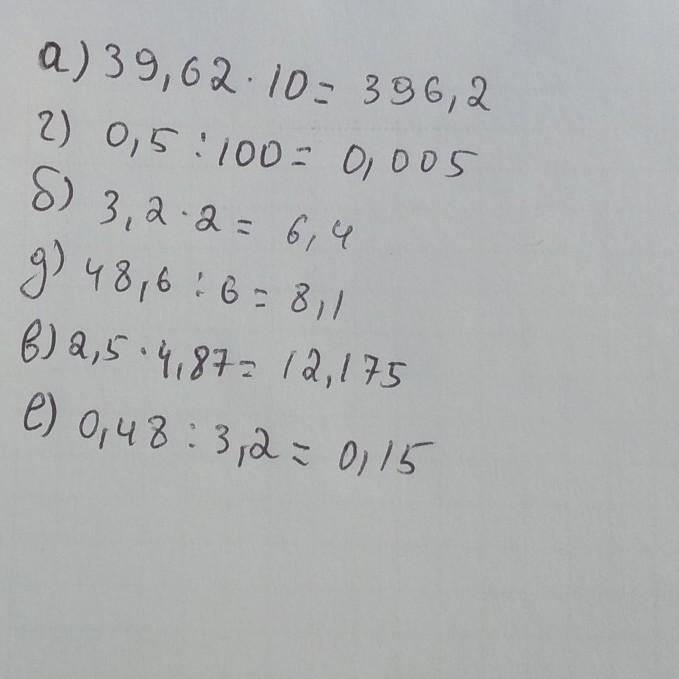 а) 39,62 · 10 = 396,2
г) 0,5 : 100 = 0,005
б) 3,2 · 2 = 6,4
д) 48,6 : 6 = 8,1
в) 2,5 · 4,87 = 12,175
е) 0,48 : 3,2 = 0,15